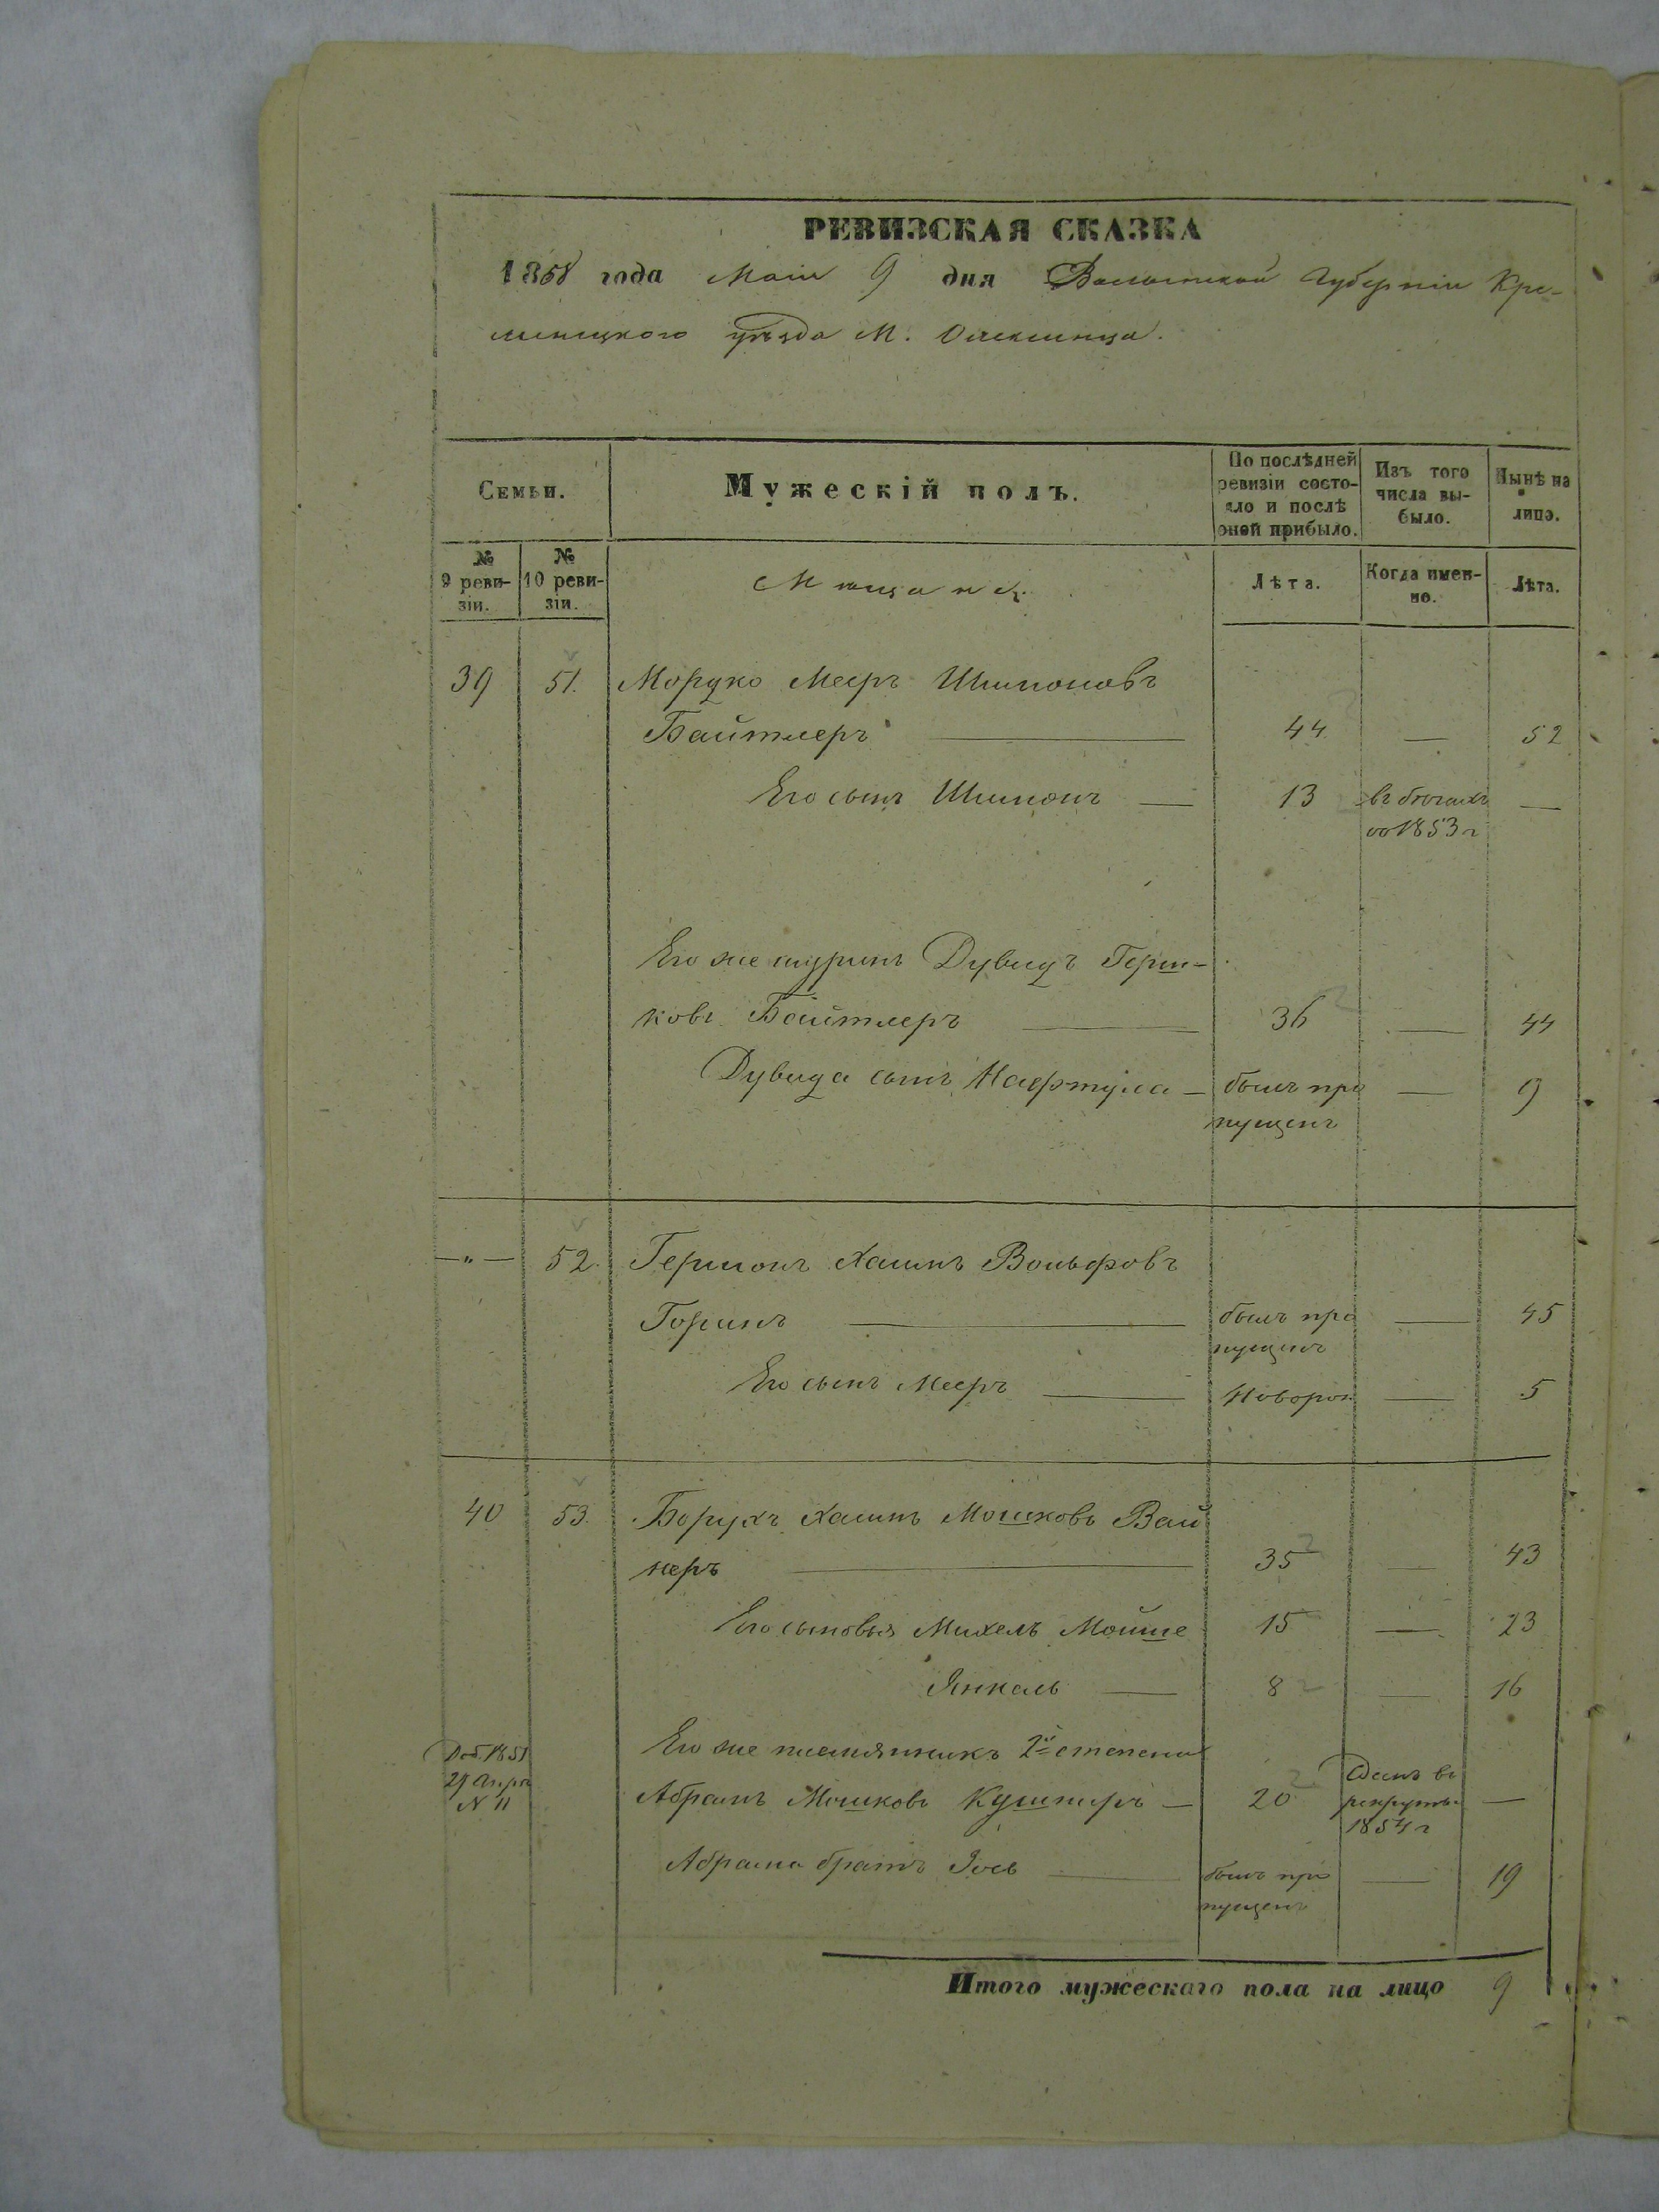 РЕВИЗСКАЯ СКАЗКА
1858 года Маія 9 дня Волынской Губерніи Кре-
менецкого уѣзда М. Олексинца.
Семьи.
Мужескій полъ.
По послѣдней ревизіи состо-
яло и послѣ
оной прибыло.
Изъ того
числа вы-
было.
Нынѣ на
лицо.
№
9 реви-
зіи.
№
10 реви-
зіи.
Мѣщане.
Лѣта.
Когда имен-
но.
Лѣта.
39 51. Мордко Мееръ Шимоновъ
Байтлеръ — 44 — 52
Его сынъ Шимонъ — 13 въ бѣгахъ —
со 1853 г
Его же шуринъ Дувидъ Герш-
ковъ Байтлеръ — 36 — 44
Дувида сынъ Нафтула — былъ про — 9
пущенъ
—"— 52. Гершонъ Хаимъ Вольфовъ
Горинъ — былъ про — 45
пущенъ
Его сынъ Мееръ — Новорож — 5
40 53. Борухъ Хаимъ Мошковъ Вай
неръ — 35 — 43
Его сыновья Михель Мойше 15 — 23
Янкель — 8 — 16
Его же племянникъ 2й степени
Доб. 1851
29 Апрѣ
N 11
Абрамъ Мошковъ Кушниръ — 20 Сданъ въ
рекруты
1854 г —
Абрама братъ Іось — былъ про — 19
пущенъ
Итого мужескаго пола на лицо 9